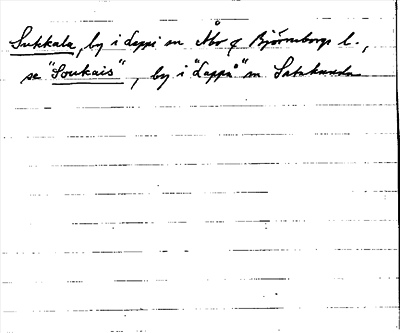 Sukkala, by i Lappi sn Åbo o Björneborgs l.,
se "Soukais", by i "Lappå" sn Satakunda